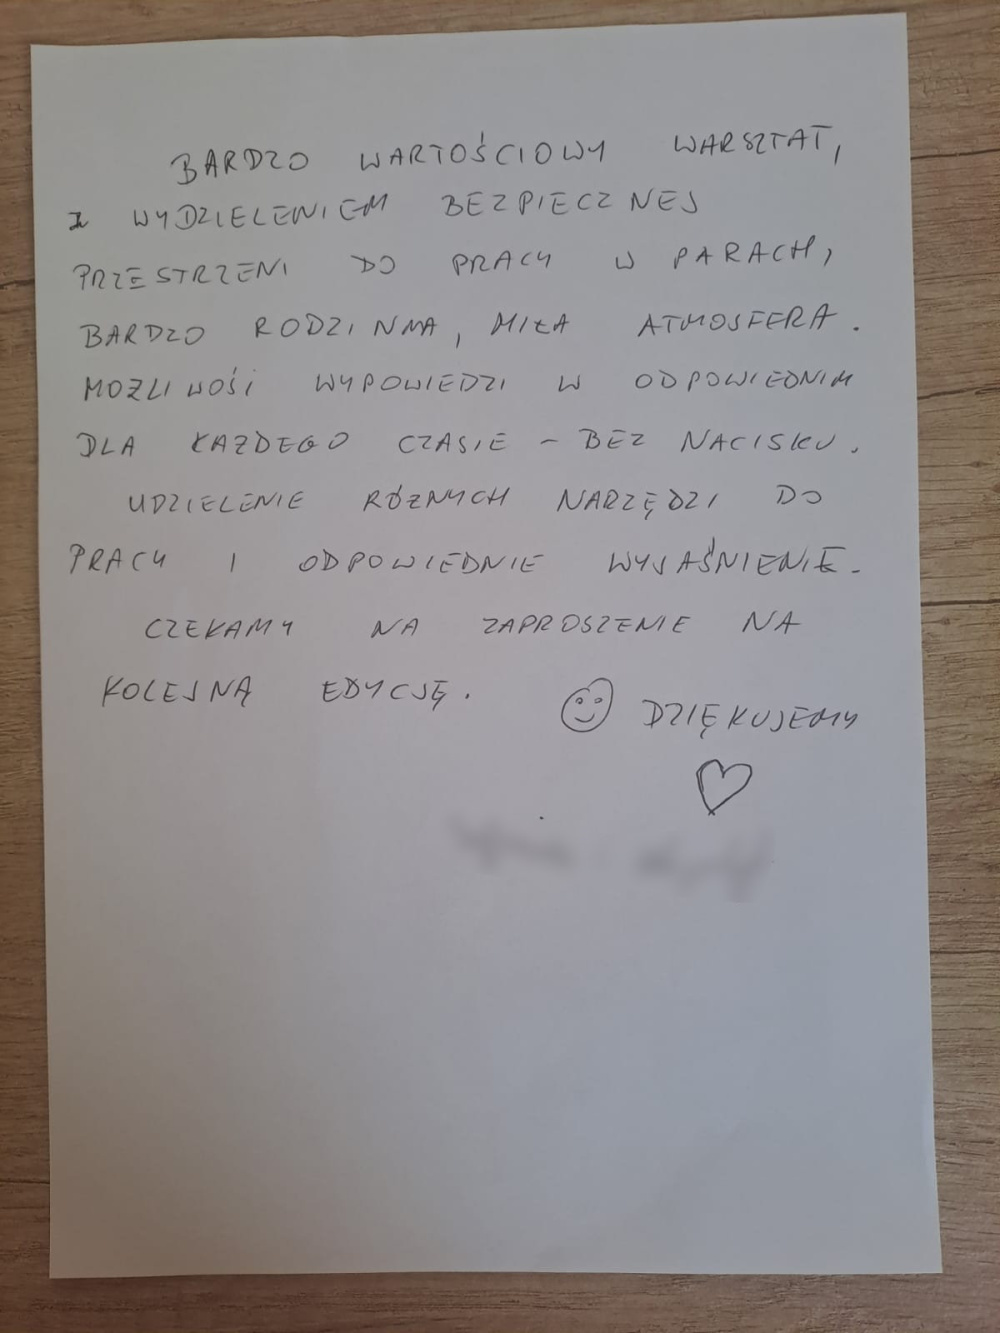 BARDZO WARTOŚCIOWY WARSZTAT,
Z WYDZIELENIEM BEZPIECZNEJ
PRZESTRZENI DO PRACY W PARACH,
BARDZO RODZINNA, MIŁA ATMOSFERA.
MOŻLIWOŚI WYPOWIEDZI W ODPOWIEDNIM
DLA KAŻDEGO CZASIE - BEZ NACISKU.
UDZIELENIE RÓŻNYCH NARZĘDZI DO
PRACY I ODPOWIEDNIE WYJAŚNIENIE.
CZEKAMY NA ZAPROSZENIE NA
KOLEJNĄ EDYCJĘ.
DZIĘKUJEMY